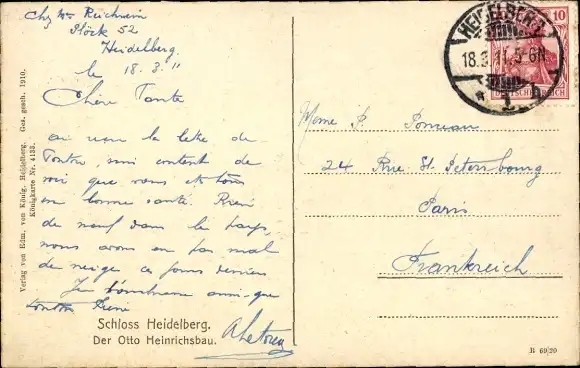 Chez Mr Reichwein
Plöck 52
Heidelberg.
le 18.3.11
Chère Tante
ai reçu la lettre de
content de
voir que vous êtes tous
en bonne santé. Rien
de neuf dans le pays,
nous avons eu pas mal
de neige ces jours derniers
Je t'embrasse ainsi que
tonton Pierre
Schloss Heidelberg.
Der Otto Heinrichsbau.
Verlag von Edm. von König, Heidelberg. Ges. gesch. 1910.
Königkarte Nr. 4133.
HEIDELBERG
18.3.11.5-6N.
* 1 h
10
DEUTSCHES REICH
Mme P.
24 Rue St. Petersbourg
Paris
Frankreich